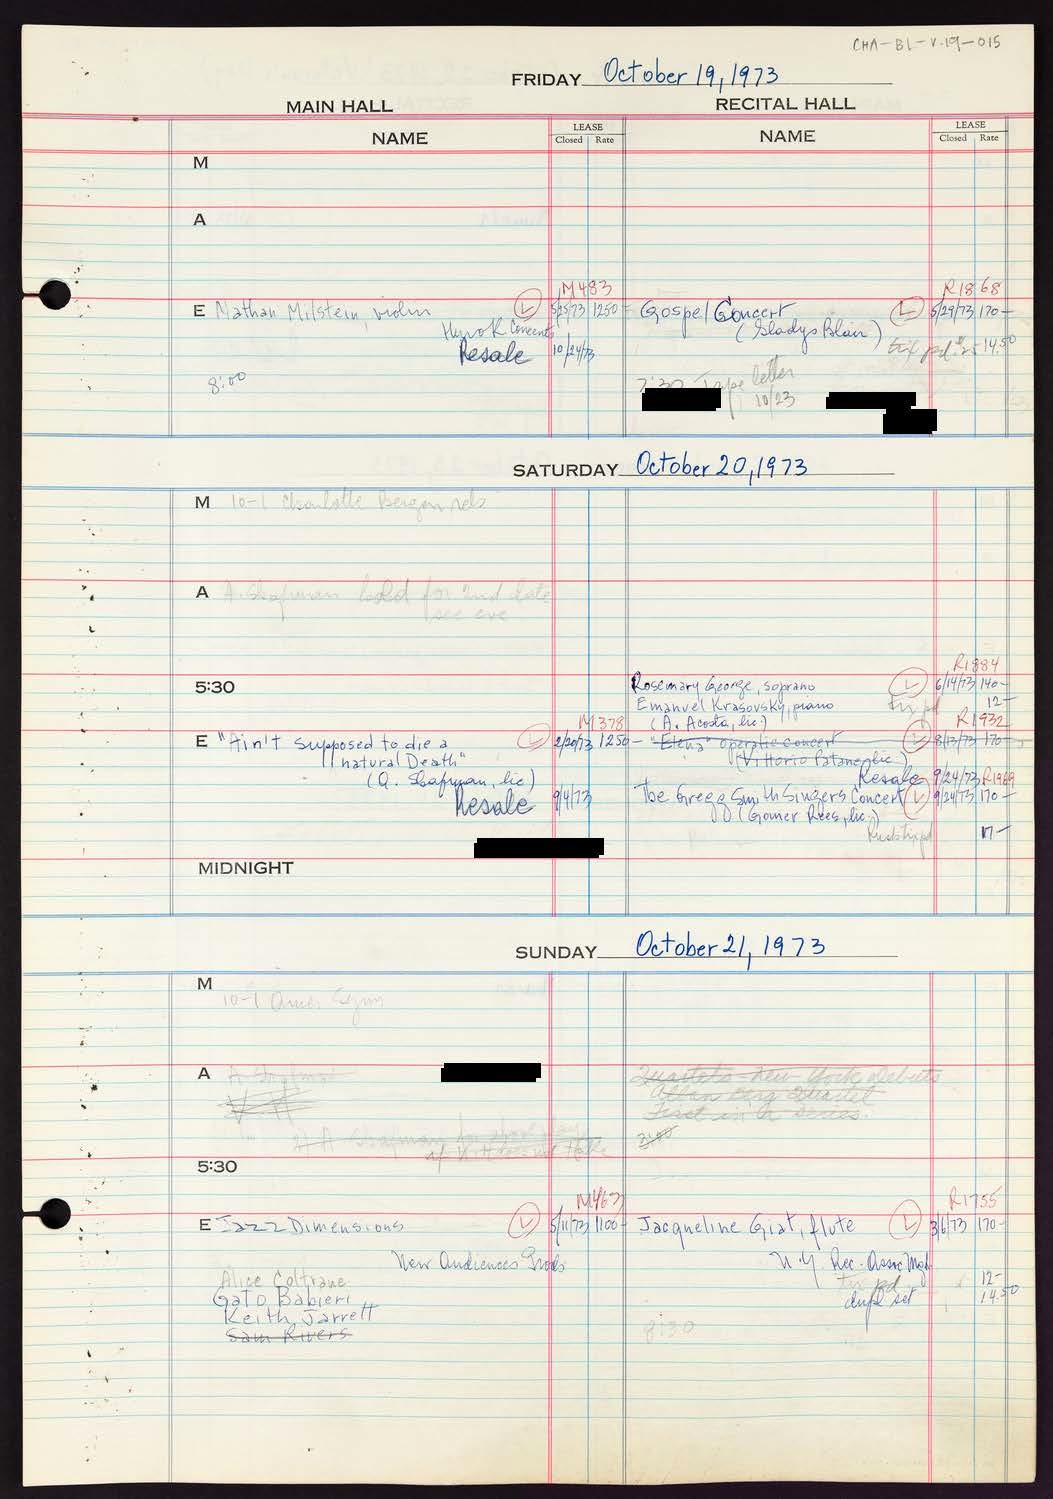 CHA-BL-V.19-015
FRIDAY October 19, 1973
MAIN HALL RECITAL HALL
NAME LEASE Closed Rate NAME LEASE Closed Rate
M
A
M483 R1868
E Nathan Milstein, violin L 5/25/73 1250- Gospel Concert L 5/29/73 170-
Hurok Concerts (Gladys Blair)
Resale 10/24/73 tix pd. 14.50
8:00 7:30 Tape letter
10/23
SATURDAY October 20, 1973
M 10-1 Charlotte Bergen reh
A A. Shapman hold for 2nd date
see eve
R1884
5:30 Rosemary George, soprano L 6/14/73 140-
Emanuel Krasovsky, piano tix pd 12-
M378 (A. Acosta, lic.) R1932
E "Ain't supposed to die a L 2/20/73 1250- "Elena" operatic concert L 8/13/73 170-
natural Death" (Vittorio Patane, lic.)
(A. Shapman, lic) Resale 9/24/73 R1969
Resale 9/4/73 The Gregg Smith Singers Concert L 9/24/73 170-
(Gomer Rees, lic.)
17-
MIDNIGHT
SUNDAY October 21, 1973
M 10-1 Amer Sym
A A. Shapman Quartets-New York Debuts
Alban Berg Quartet
First in a series.
A Shapman 2:00
5:30
M467 R1755
E Jazz Dimensions L 5/11/73 1100- Jacqueline Giat, flute L 3/6/73 170-
New Audiences Prods N.Y. Rec. Assoc Mgt
Alice Coltrane tix pd 12-
Gato Babieri dupl set 14.50
Keith Jarrett
Sam Rivers 8:30